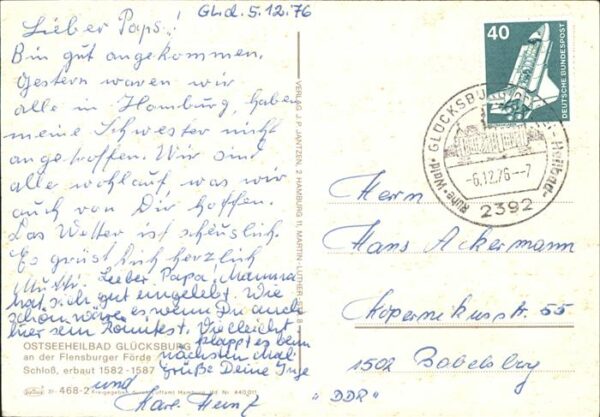 Glbd. 5.12.76
Lieber Paps!
Bin gut angekommen.
Gestern waren wir
alle in Hamburg, haben
meine Schwester nicht
angetroffen. Wir sind
alle wohlauf, was wir
auch von Dir hoffen.
Das Wetter ist scheuslich.
Es grüst Dich herzlich
Mutti. Lieber Papa, Mamma
hat sich gut eingelebt. Wie
schön wäre es, wenn Du auch
hier sein könntest. Vielleicht
klappt es beim
nächsten mal
grüße Deine Inge
und
Karl-Heinz
OSTSEEHEILBAD GLÜCKSBURG
an der Flensburger Förde
Schloß, erbaut 1582-1587
468-2 Freigegeben
VERLAG J. P. JANTZEN, 2 HAMBURG 11, MARTIN-LUTHER-STR.
40
DEUTSCHE BUNDESPOST
GLÜCKSBURG
Heilbad
Ruhe · Wald
-6.12.76--7
2392
Herrn
Hans Ackermann
Kopernikusstr. 55
1502 Babelsberg
"DDR"